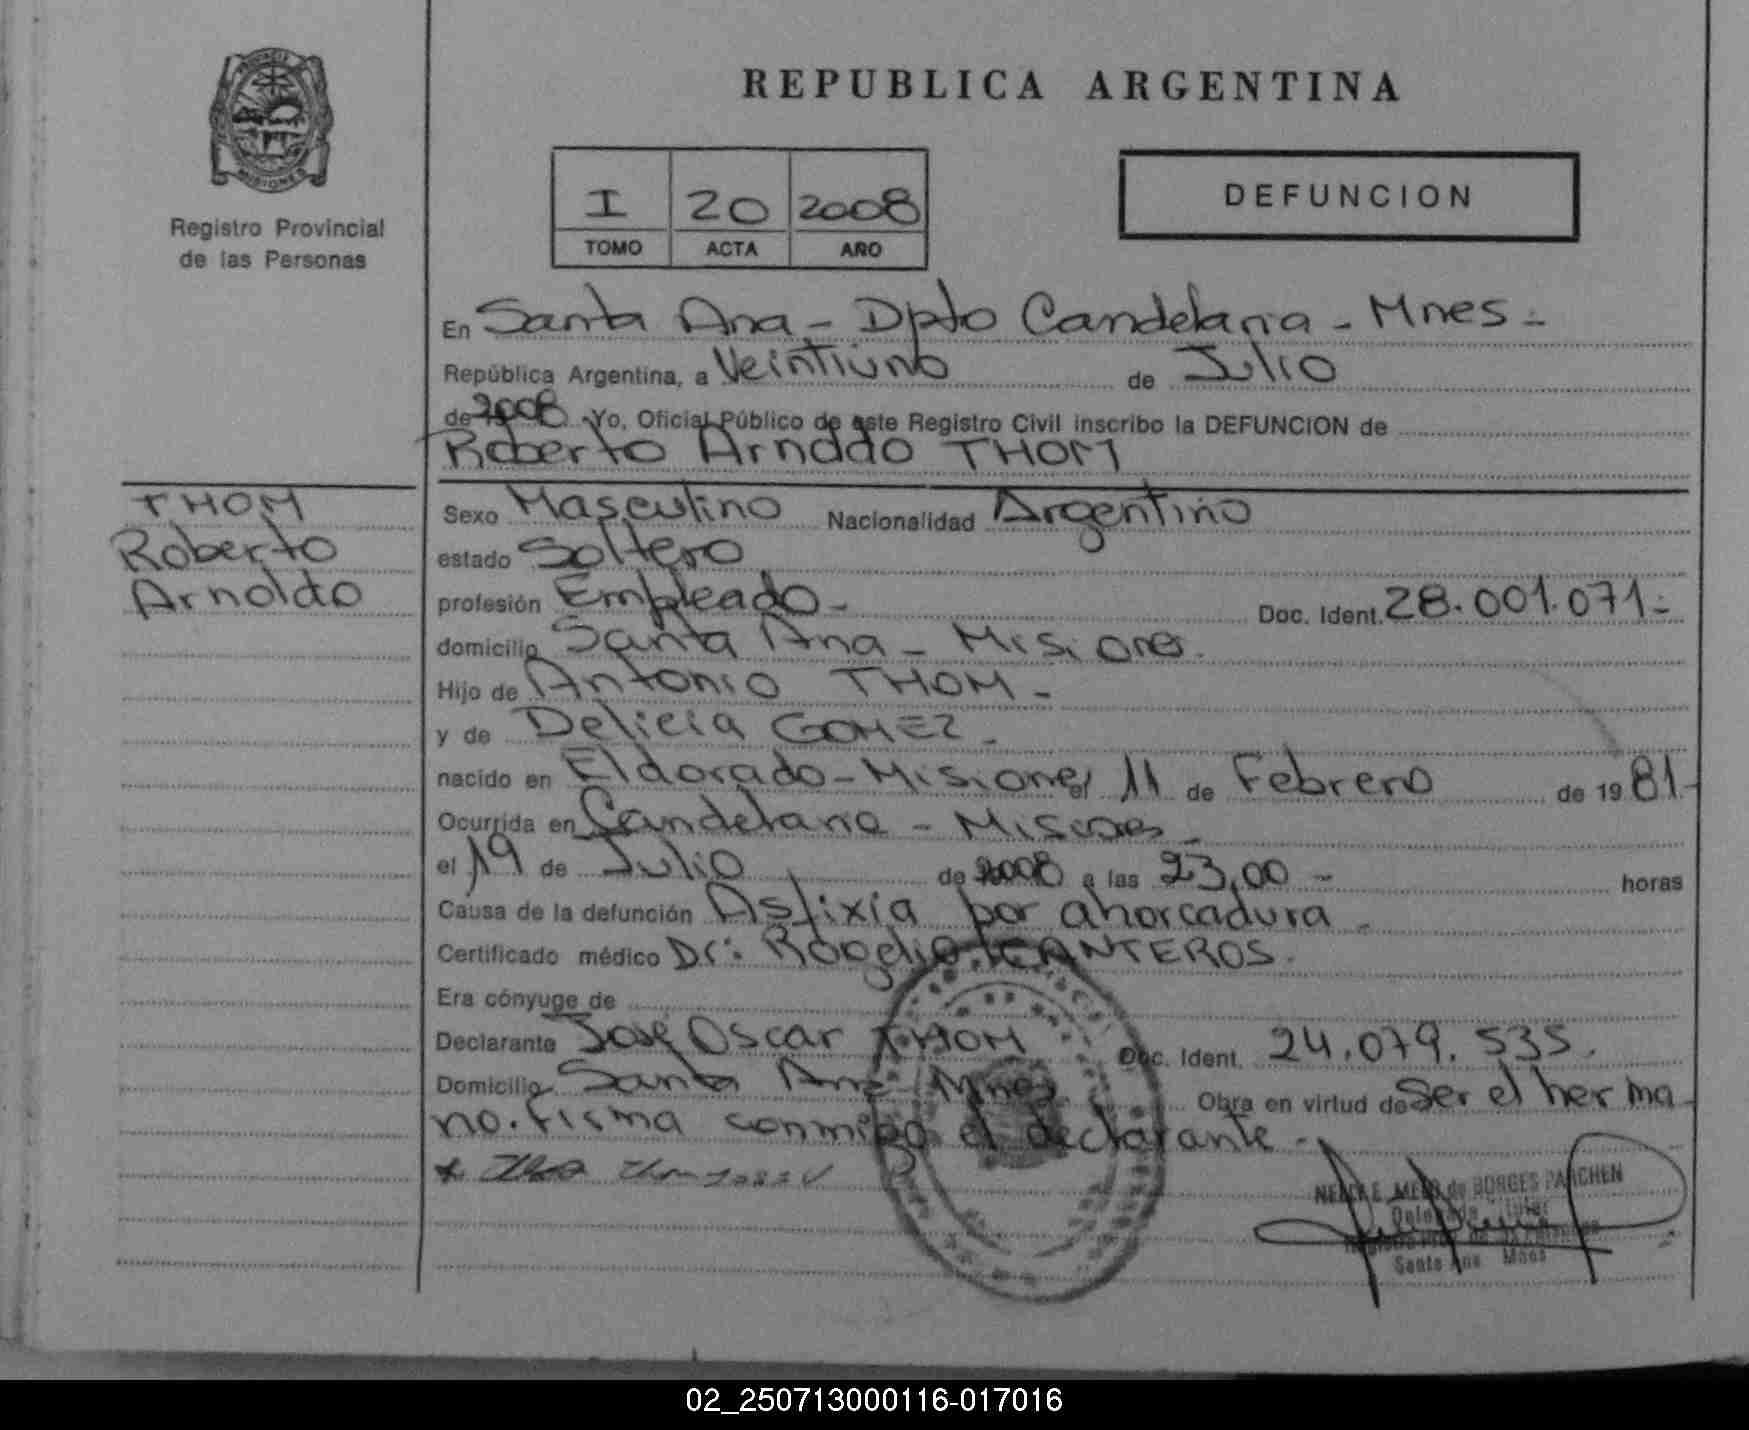 PROVINCIA
MISIONES
Registro Provincial
de las Personas
REPUBLICA ARGENTINA
I 20 2008
TOMO ACTA AÑO
DEFUNCION
En Santa Ana - Dpto Candelaria - Mnes -
República Argentina, a Veintiuno de Julio
de 2008 Yo, Oficial Público de este Registro Civil inscribo la DEFUNCION de
Roberto Arnoldo THOM
THOM
Roberto
Arnoldo
Sexo Masculino Nacionalidad Argentino
estado Soltero
profesión Empleado - Doc. Ident. 28.001.071 -
domicilio Santa Ana - Misiones.
Hijo de Antonio THOM -
y de Delicia GOMEZ -
nacido en Eldorado - Misiones el 11 de Febrero de 1981 -
Ocurrida en Candelaria - Misiones -
el 19 de Julio de 2008 a las 23,00 - horas
Causa de la defunción Asfixia por ahorcadura -
Certificado médico Dr: Rogelio CANTEROS.
Era cónyuge de
Declarante José Oscar THOM Doc. Ident. 24.079.535.
Domicilio Santa Ana Mnes. Obra en virtud de Ser el herma
no. Firma conmigo el declarante -
de BORGES PARCHEN
Santa Ana Mnes
02_250713000116-017016